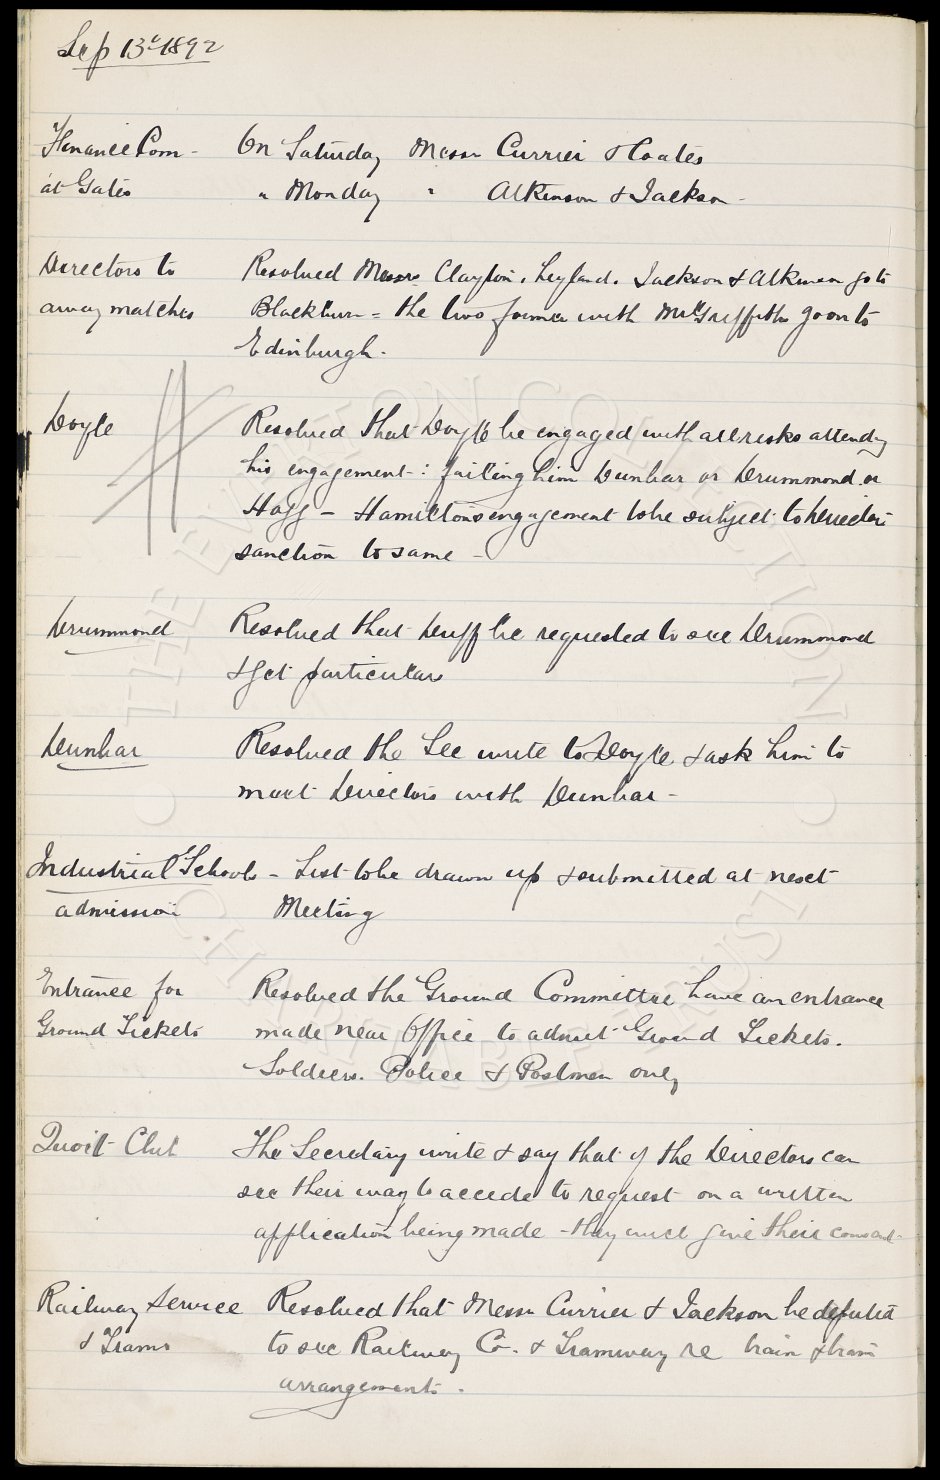 Sep 13th 1892
Finance Com - On Saturday Messrs Currier & Coates
at Gates " Monday " Atkinson & Jackson -
Directors to Resolved Messrs Clayton, Leyland, Jackson & Atkinson go to
away matches Blackburn = the two former with Mr Griffiths go on to
Edinburgh.
Doyle Resolved that Doyle be engaged with all risks attending
his engagement : failing him Dunbar or Drummond or
Hogg - Hamiltons engagement to be subject to Directors
sanction to same -
Drummond Resolved that Duff be requested to see Drummond
& get particulars
Dunbar Resolved the Sec write to Doyle & ask him to
meet Directors with Dunbar -
Industrial Schools - List to be drawn up & submitted at next
admission Meeting
Entrance for Resolved the Ground Committee have an entrance
Ground Tickets made near Office to admit Ground Tickets.
Soldiers. Police & Postmen only
Quoit Club The Secretary write & say that if the Directors can
see their way to accede to request on a written
application being made - they will give their consent -
Railway Service Resolved that Messrs Currier & Jackson be deputed
& Trams to see Railway Co. & Tramway re train & tram
arrangements.
THE EVERTON COLLECTION
CHARITABLE TRUST